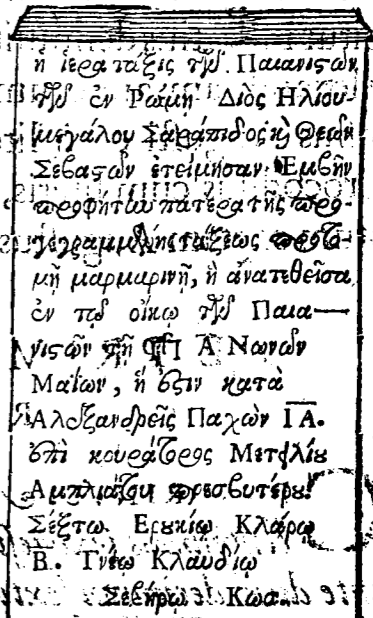 ἡ ἱερὰ τάξις τῶν Παιανιστῶν
τῶν ἐν Ῥώμῃ Διὸς Ἡλίου
μεγάλου Σαράπιδος κỳ Θεῶν
Σεβαστῶν ἐτείμησαν Ἐμβῆν
προφήτην πατέρα τῆς προ-
γεγραμμένης τάξεως προτο-
μῇ μαρμαρινῇ, ἡ ἀνατεθεῖσα
ἐν τῷ οἴκῳ τῶν Παια—
νιστῶν τῇ Α Νωνῶν
Μαΐων, ἥ ἐστιν κατὰ
Ἀλεξανδρεῖς Παχὼν ΙΑ.
ἐπὶ κουράτορος Μετιλίου
Ἀμπλιάτου πρεσβυτέρου.
Σέξτῳ Ἐρυκίῳ Κλάρῳ
Β. Γνέῳ Κλαυδίῳ
Σεβήρῳ Κωσ.